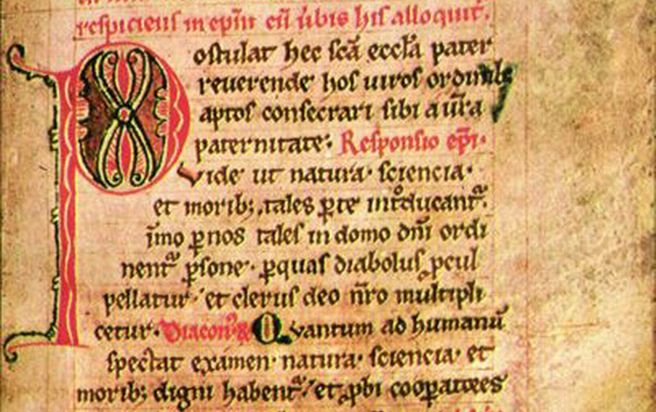 respiciens in epm cū ūbis his alloquit̄.
Postulat hec scā eccła pater
reuerende hos uiros ordini
aptos consecrari sibi a ūra
paternitate. Responsio epi.
Vide ut natura. sciencia.
et morib; tales ꝑ te introducant̄.
imo ꝑ nos tales in domo dn̄i ordi
nent̄ ꝑsone. ꝑ quas diabolus ꝓcul
pellatur. et clerus deo nr̄o multipli
cetur. Diacon9 Quantum ad humanū
spectat examen. natura. sciencia. et
morib; digni habent̄. et ꝓbi cooꝑatores